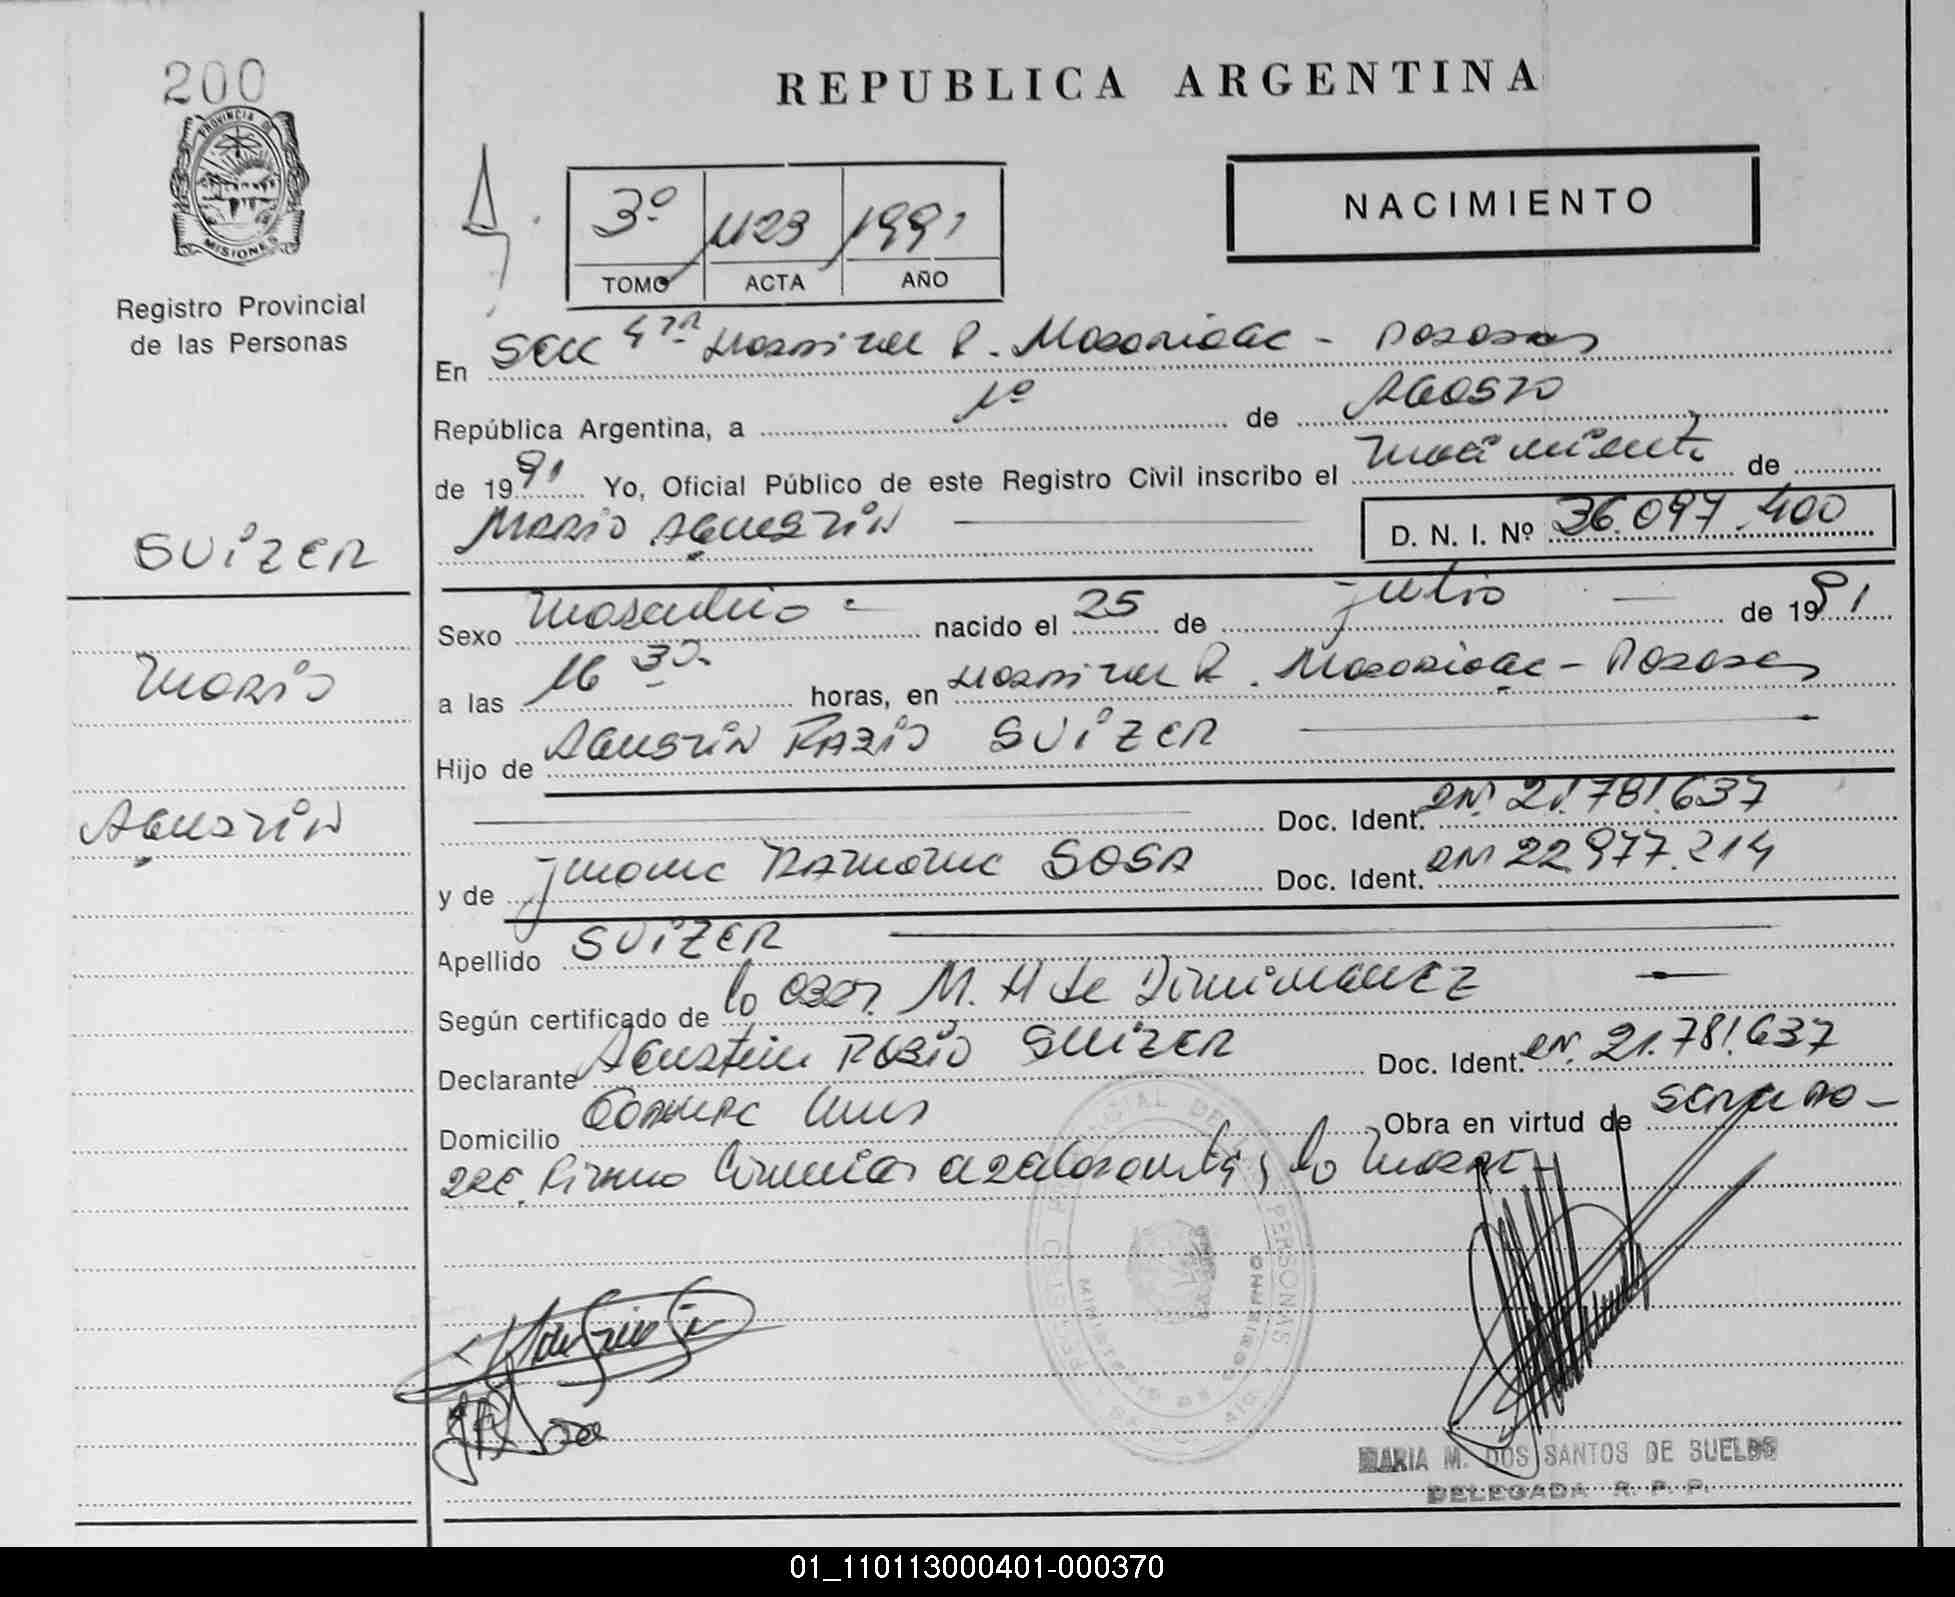 200
PROVINCIA DE
MISIONES
Registro Provincial
de las Personas
REPUBLICA ARGENTINA
NACIMIENTO
3º 1123 1991
TOMO ACTA AÑO
En Secc 4ta Hospital R. Madariaga - Posadas
República Argentina, a 1º de Agosto
de 1991 Yo, Oficial Público de este Registro Civil inscribo el nacimiento de
Mario Agustin D. N. I. Nº 36.097.400
SUIZER
Mario
Agustin
Sexo Masculino nacido el 25 de julio de 1991
a las 16 30 horas, en Hospital R. Madariaga - Posadas
Hijo de Agustin SUIZER
Doc. Ident. DNI 21.781.637
y de Juana Ramona SOSA Doc. Ident. DNI 22.977.214
Apellido SUIZER
Según certificado de la Obst. M. H de
Declarante Agustin SUIZER Doc. Ident. DNI 21.781.637
Domicilio Obra en virtud de
REGISTRO PROVINCIAL DE LAS PERSONAS
MINISTERIO DE GOBIERNO
MARIA M. DOS SANTOS DE SUELDS
DELEGADA R. P. P.
01_110113000401-000370